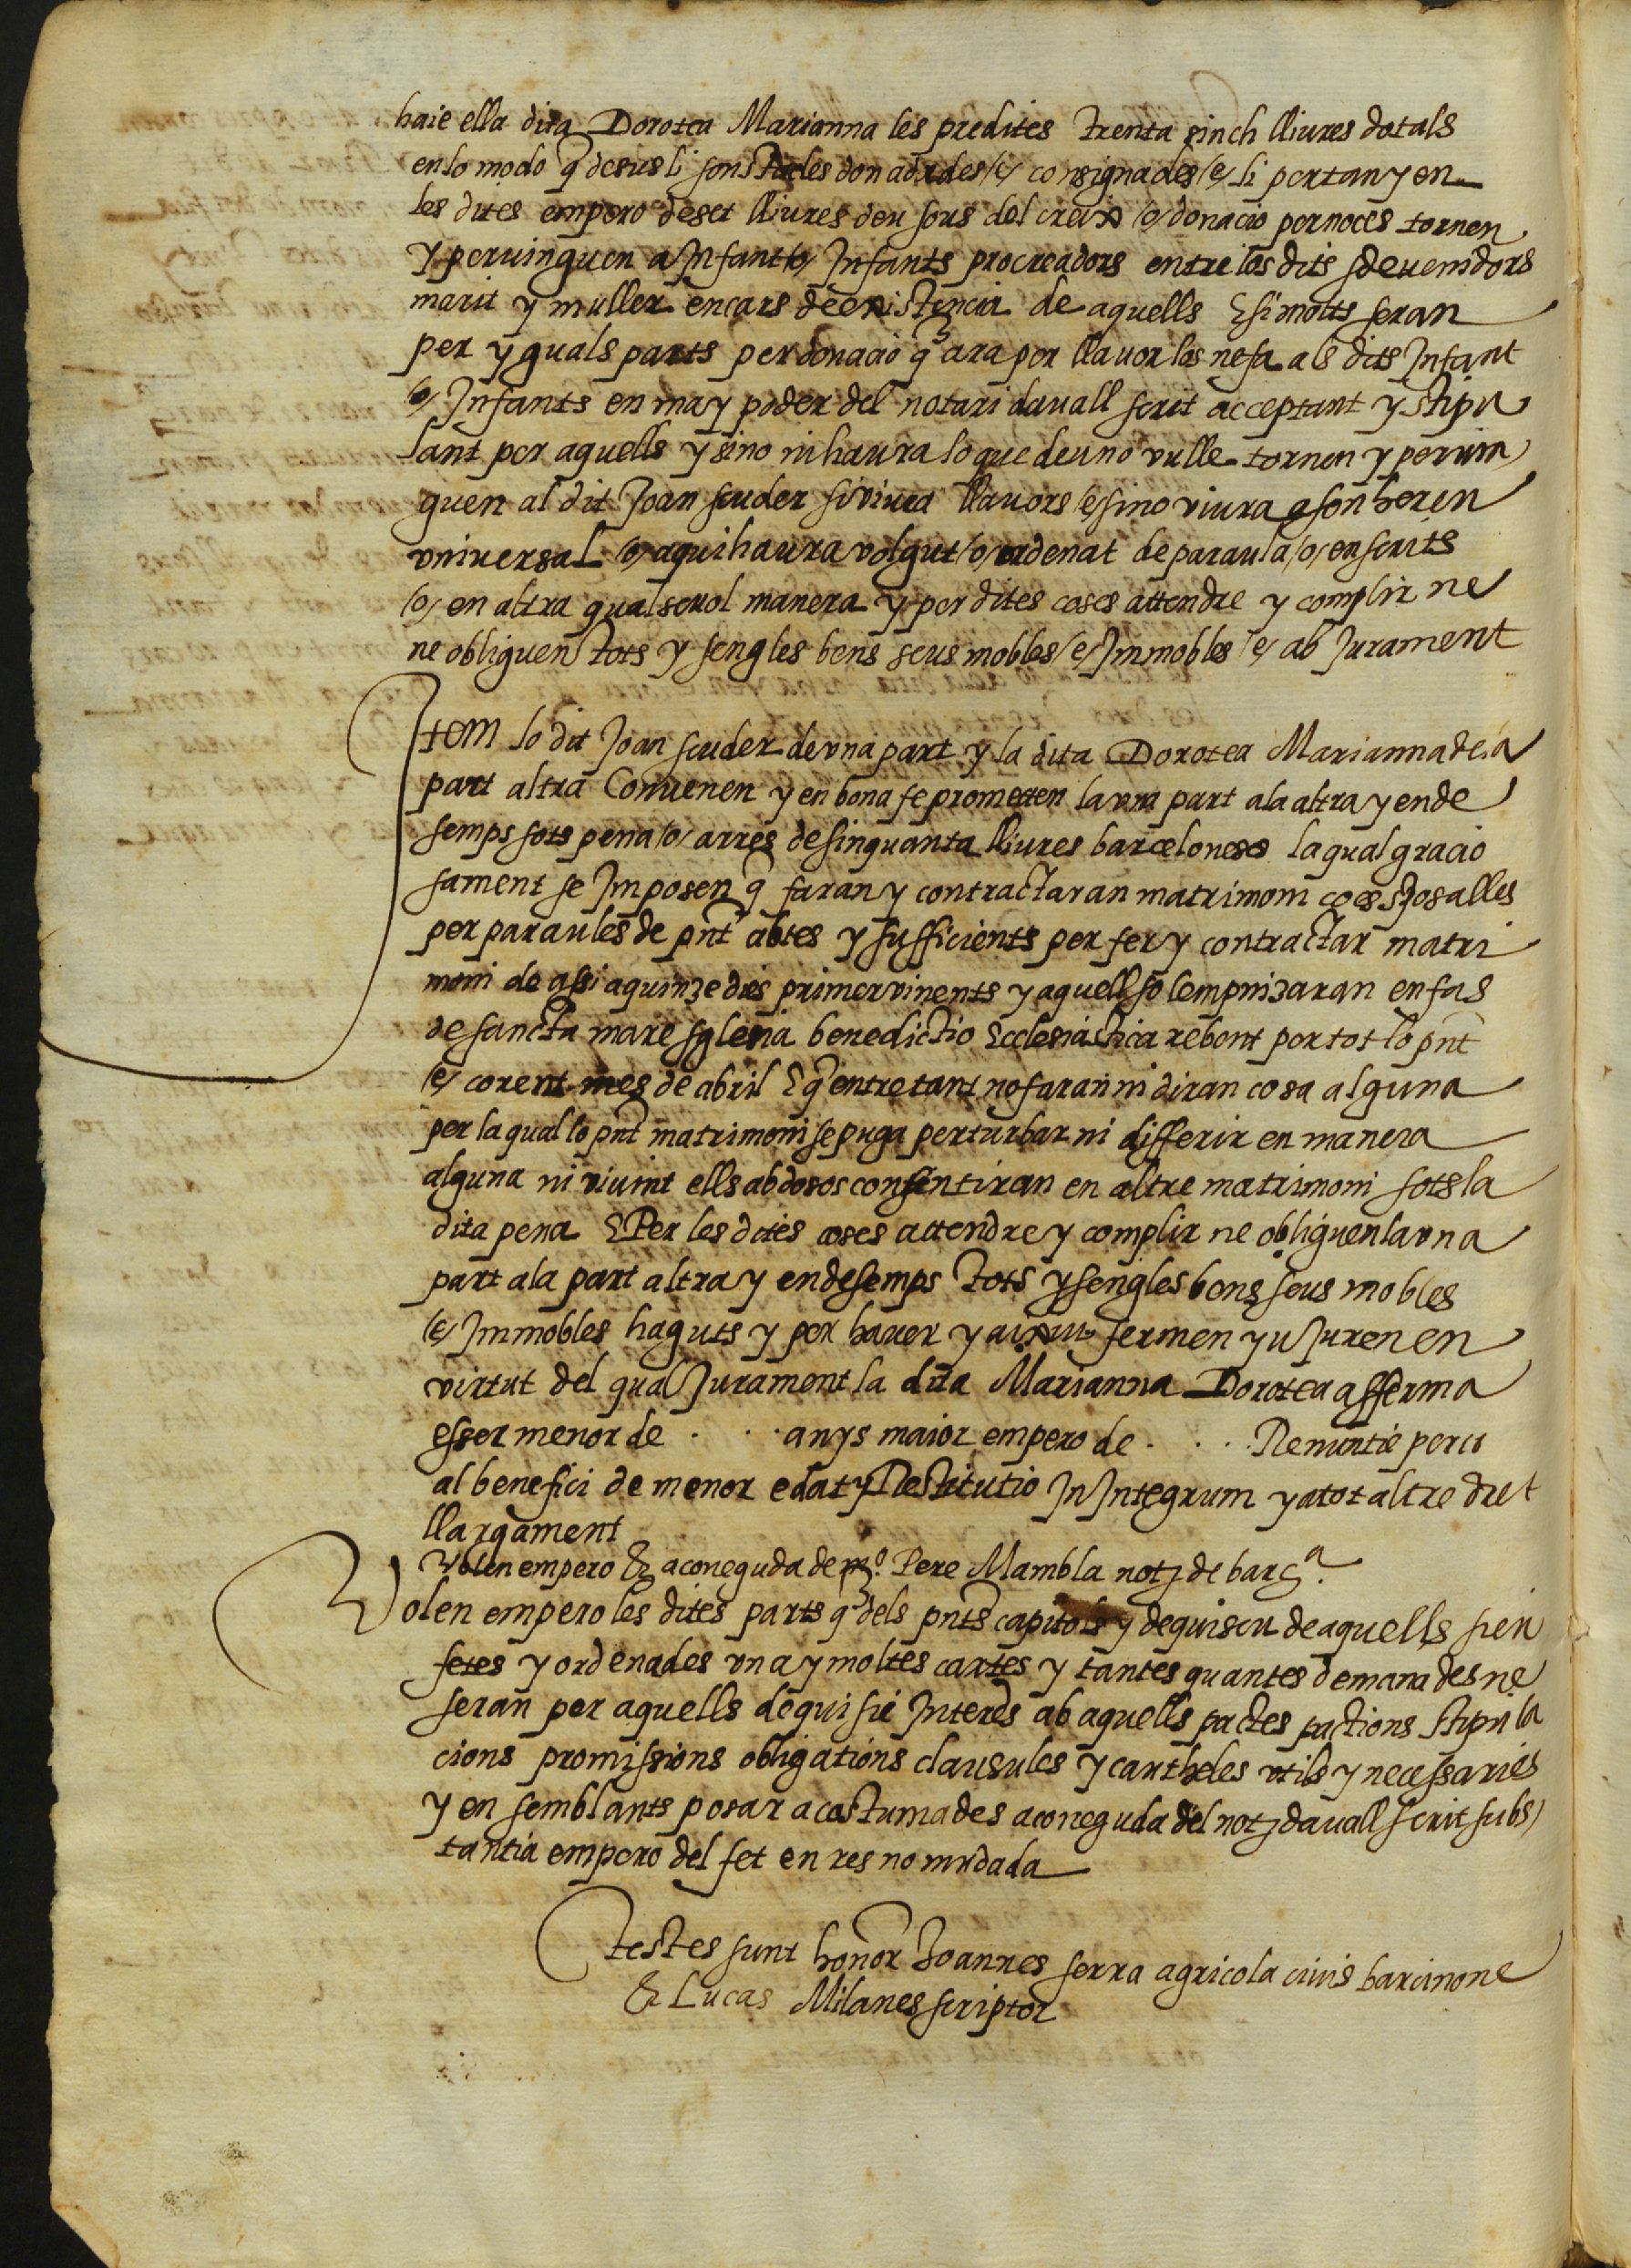 haie ella dita Dorotea Marianna les predites trenta sinch lliures dotals
en lo modo q̃ desus li son stades donadades /e/ consignades /e/ li pertanyen
les dites empero deset lliures deu sous del creix /o/ donacio per noces tornen
y pervinguen a Infant /o/ Infants procreadors entre los dits sdevenidors
marit y muller en cars de existencia de aquells E si molts seran
per yguals parts per donacio q̃ ara per llavor los ne fa als dits Infant
/o/ Infants en ma y poder del notari davall scrit acceptant y stipu
lant per aquells y si no ni haura lo que deu no vulle tornen y pervin
guen al dit Joan scuder si viura llavors /e/ sino viura a son hereu
vniversal /o/ a qui haura volgut /o/ ordenat de paraula /o/ en scrits
/o/ en altra qualsevol manera y per dites coses attendre y complir ne
ne obliguen tots y sengles bens seus mobles /e/ Immobles /e/ ab Jurament
Item lo dit Joan scuder de vna part y la dita Dorotea Marianna de la
part altra Convenen y en bona fe prometen la vna part a la altra y ende
semps sots pena /o/ arres de sinquanta lliures barceloneses la qual gracio
sament se Imposen q̃ faran y contractaran matrimoni ço es sposalles
per paraules de pnt abtes y sufficients per fer y contractar matri
moni de assi a quinze dies primer vinents y aquell solempnizaran en fas
de sancta mare sglesia benedictio Ecclesiastica rebent per tot lo pnt
/e/ corent mes de abril E q̃ entretant no faran ni diran cosa alguna
per la qual lo pnt matrimoni se puga perturbar ni differir en manera
alguna ni vivint ells abdosos consentiran en altre matrimoni sots la
dita pena E Per les dites coses attendre y complir ne obliguen la vna
part a la part altra y endesemps tots y sengles bens seus mobles
/e/ Immobles haguts y per haver y aixiu fermen y u Juren en
virtut del qual Jurament la dita Marianna Dorotea afferma
esser menor de . . . anys maior empero de . . . Renuntie per ço
al benefici de menor edat y Restitutio In Integrum y a tot altre dret
llargament
Volen empero &ᵃ a coneguda de mº. Pere Mambla notj de barçª.
Volen empero les dites parts q̃ dels pnts capitols y de quiscu de aquells sien
fetes y ordenades vna y moltes cartes y tantes quantes demanades ne
seran per aquells de qui sie Interes ab aquells pactes pactions stipula
cions promissions obligations clausules y cautheles vtils y necessaries
y en semblants posar acostumades a coneguda del notj davall scrit subs
tantia empero del fet en res no mudada
testes sunt honor Joannes serra agricola civis barcinone
& Lucas Milanes scriptor